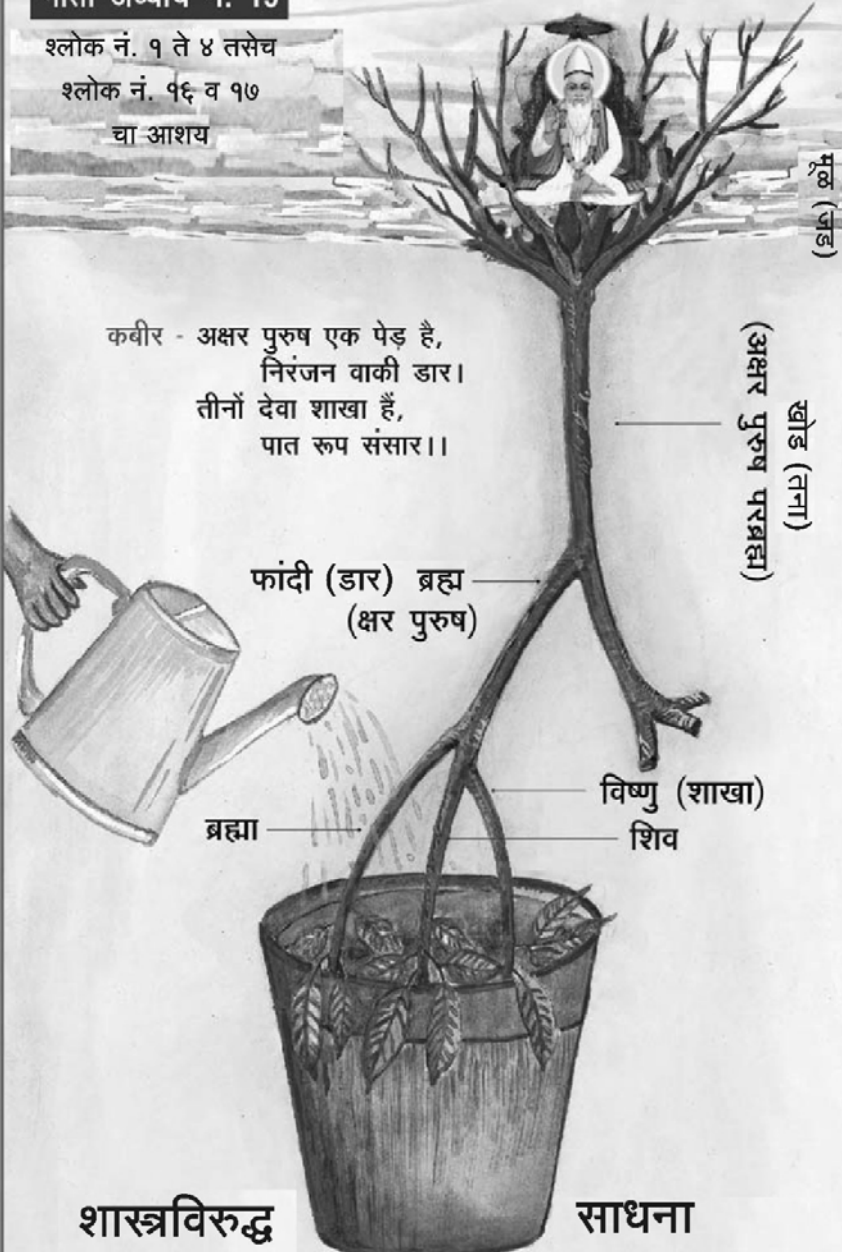 गीता अध्याय नं. 15
श्लोक नं. १ ते ४ तसेच
श्लोक नं. १६ व १७
चा आशय
मूळ (जड)
कबीर - अक्षर पुरुष एक पेड़ है,
निरंजन वाकी डार।
तीनों देवा शाखा हैं,
पात रूप संसार।।
खोड (तना)
(अक्षर पुरुष परब्रह्म)
फांदी (डार) ब्रह्म
(क्षर पुरुष)
विष्णु (शाखा)
ब्रह्मा
शिव
शास्त्रविरुद्ध साधना